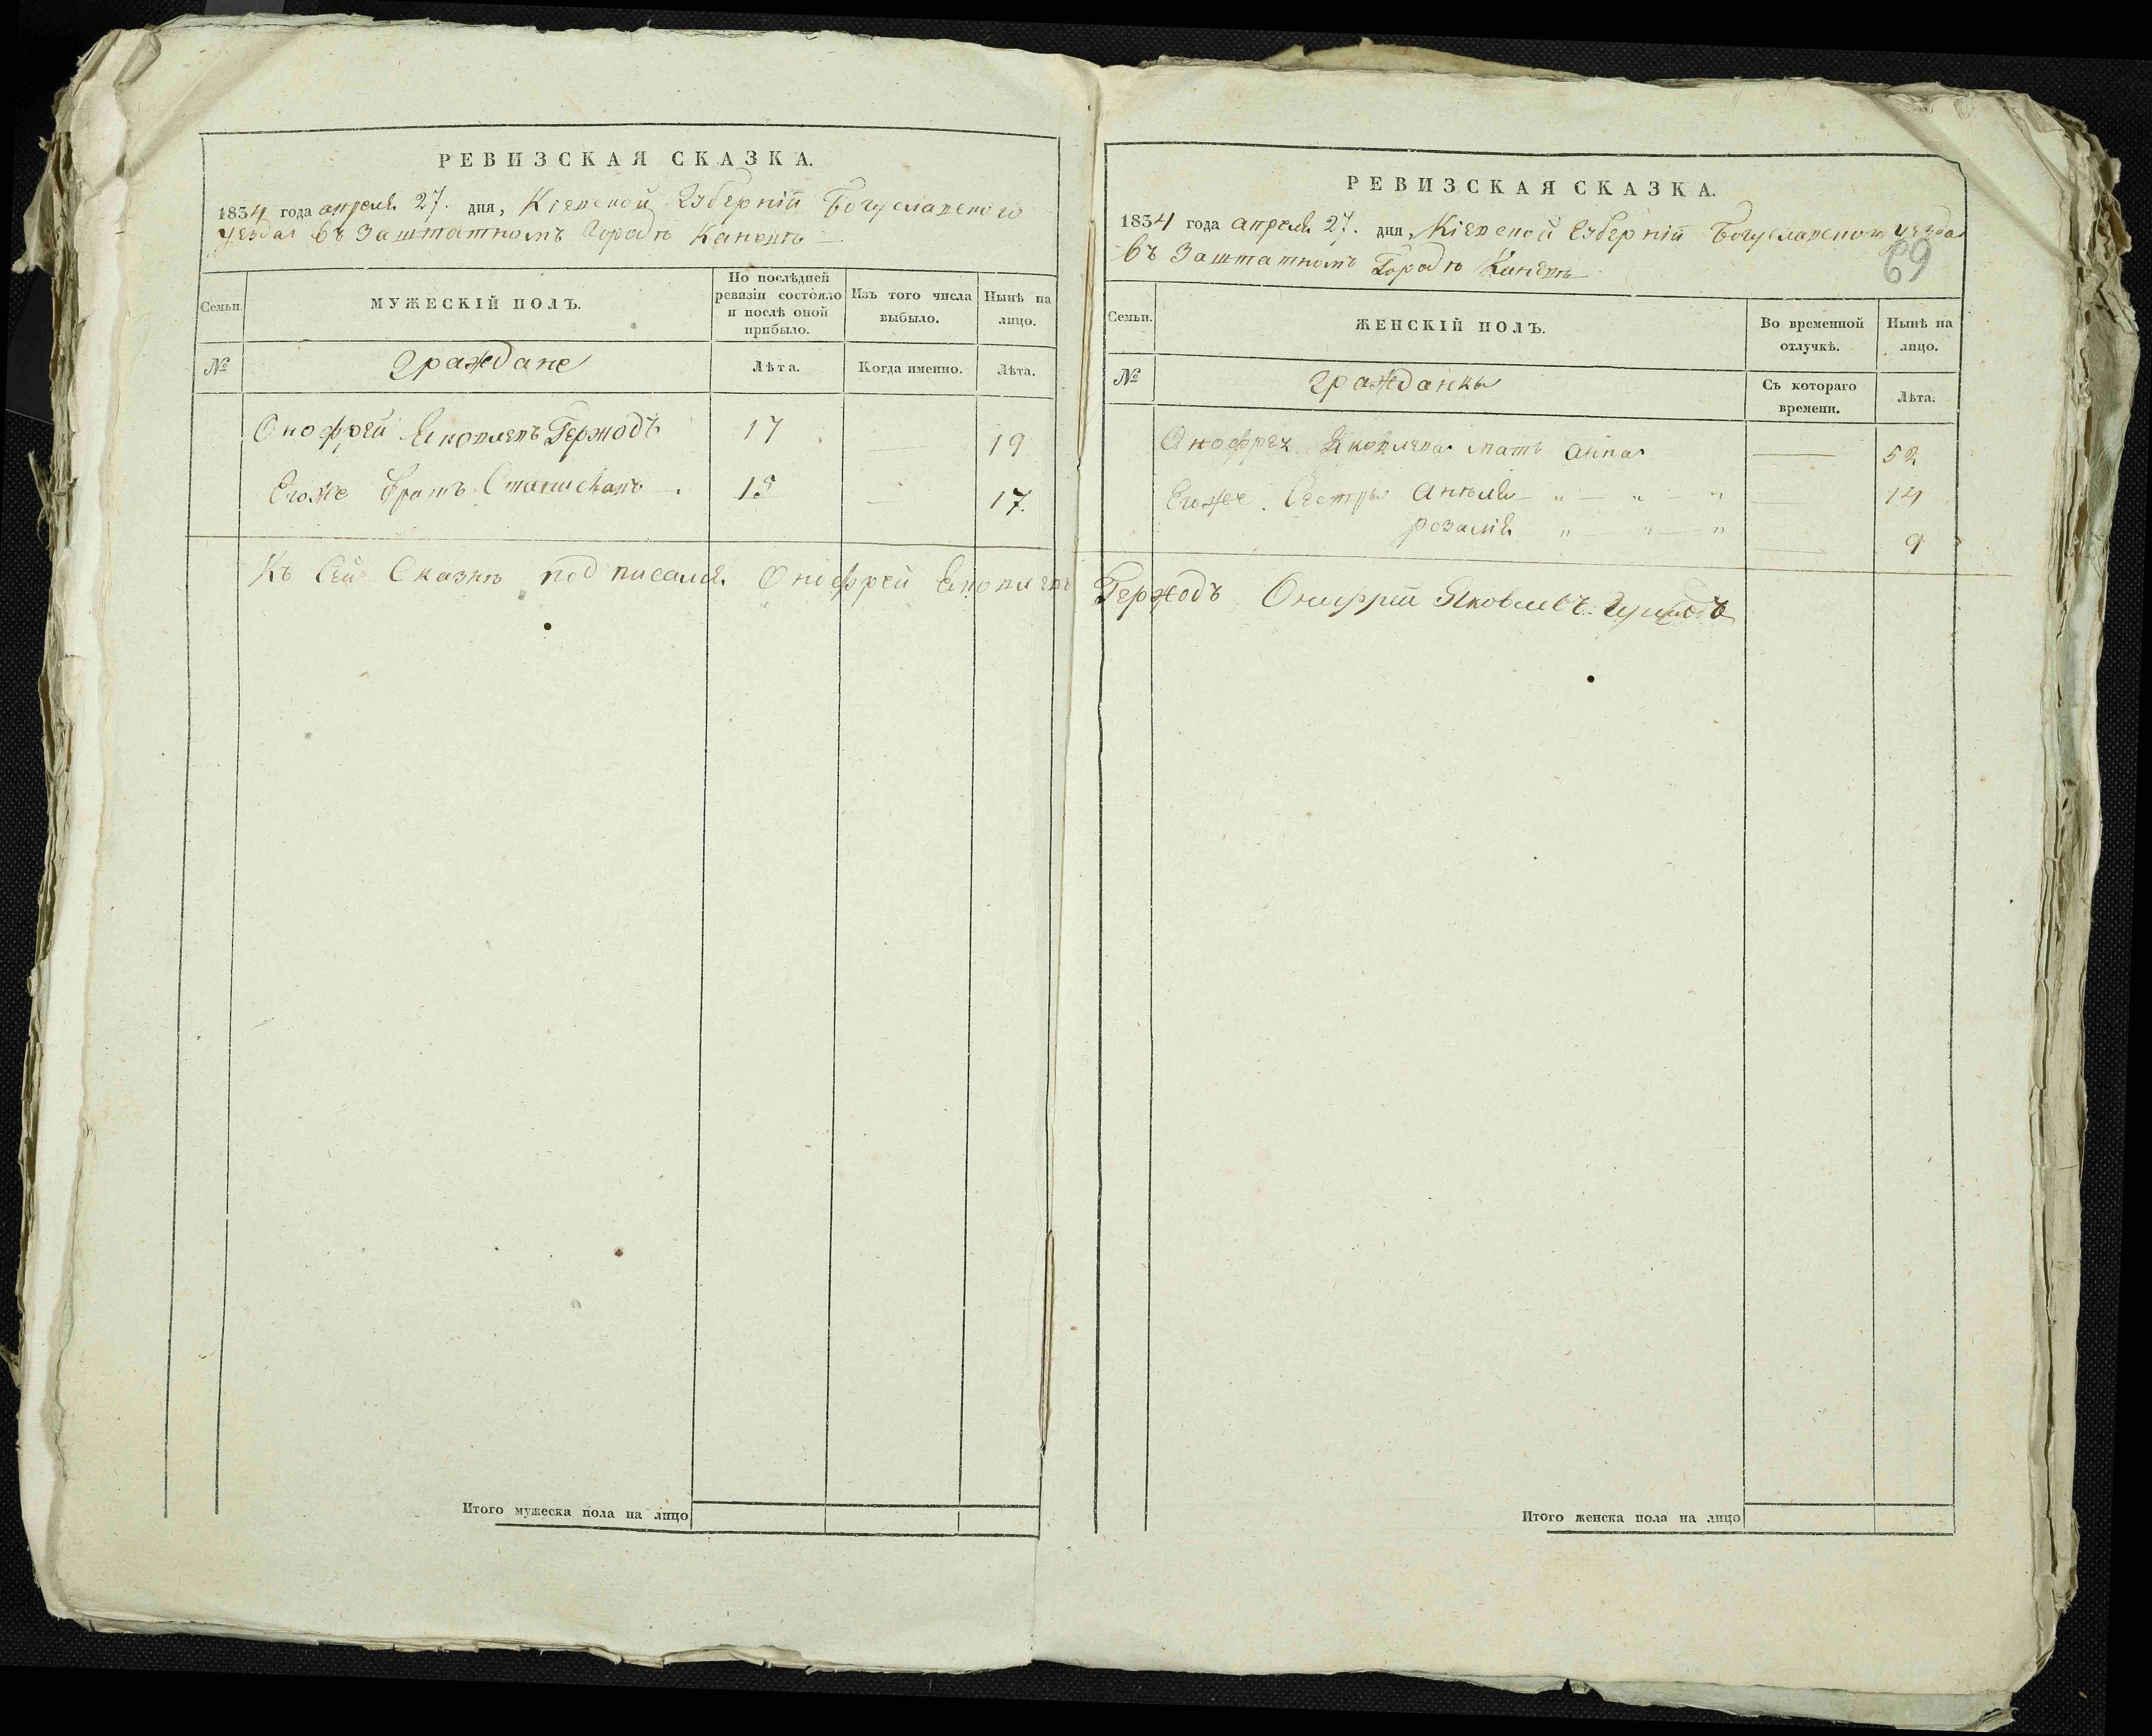 РЕВИЗСКАЯ СКАЗКА.
1834 года апреля 27. дня, Кіевской Губерніи Богуславского
уезда въ Заштатномъ Городѣ Каневѣ
Семьи.
МУЖЕСКІЙ ПОЛЪ.
По послѣдней
ревизіи состояло
и послѣ оной
прибыло.
Изъ того числа
выбыло.
Нынѣ на
лицо.
№
Граждане
Лѣта.
Когда именно.
Лѣта.
Онофрей Яковлевъ Гержодъ 17 19
Егоже братъ Станиславъ 15 17.
Къ Сей Сказкѣ подписался Онофрей Яковлевъ
Итого мужеска пола на лицо
РЕВИЗСКАЯ СКАЗКА.
1834 года апреля 27. дня, Кіевской Губерніи Богуславского уезда
въ Заштатномъ Городѣ Каневѣ
69
Семьи.
ЖЕНСКІЙ ПОЛЪ.
Во временной
отлучкѣ.
Нынѣ на
лицо.
№
Гражданки
Съ котораго
времени.
Лѣта.
Онофрея Яковлева мать Анна 52
Егоже Сестры Анѣля 14
Розалія 9
Гержодъ Онуфрій Яковлевъ
Итого женска пола на лицо